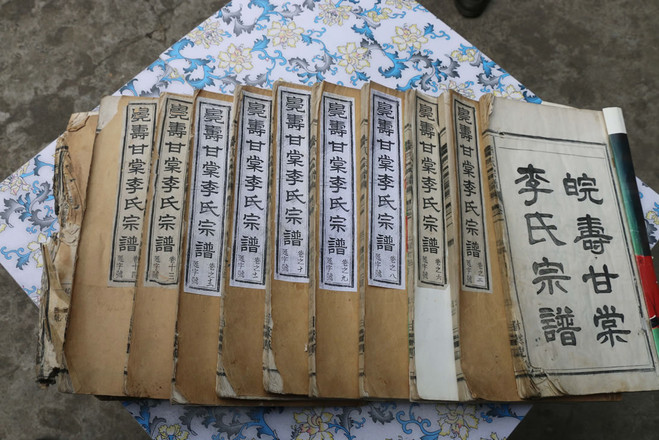 皖壽甘棠
李氏宗譜
皖壽甘棠李氏宗譜
皖壽甘棠李氏宗譜
皖壽甘棠李氏宗譜
皖壽甘棠李氏宗譜 卷之九
皖壽甘棠李氏宗譜
皖壽甘棠李氏宗譜
皖壽甘棠李氏宗譜
皖壽甘棠李氏宗譜
皖壽甘棠李氏宗譜